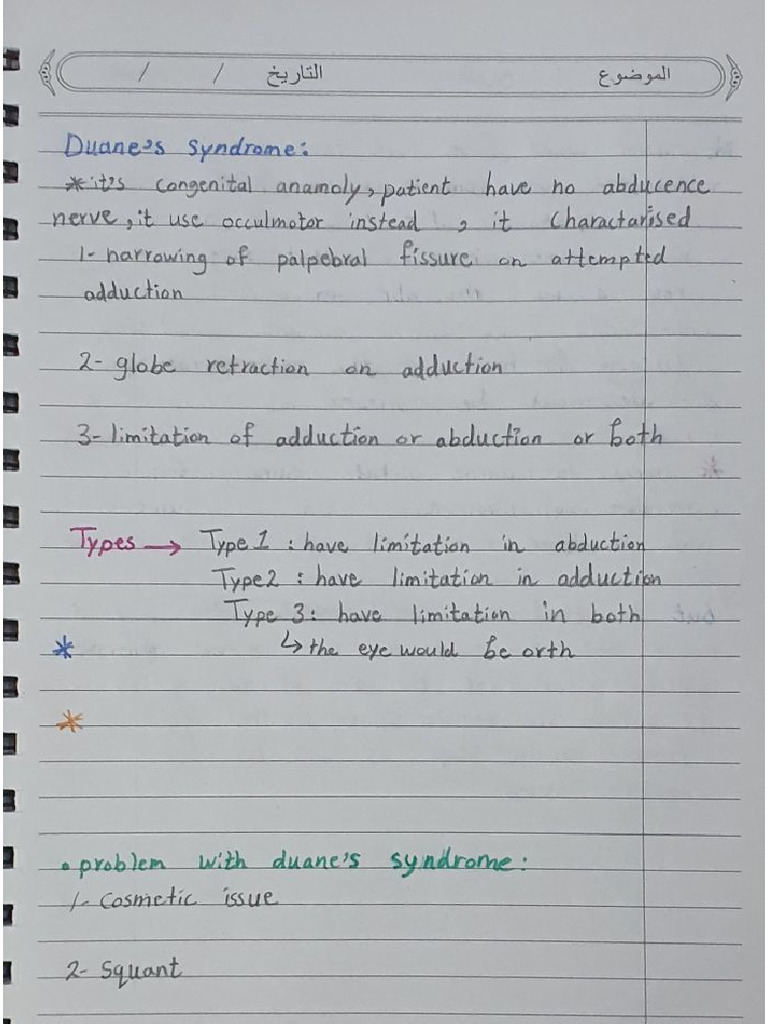 الموضوع التاريخ / /
Duane's syndrome:
*it's congenital anamoly, patient have no abducence
nerve, it use occulmotor instead , it charactarised
1- narrowing of palpebral fissure on attempted
adduction
2- globe retraction on adduction
3- limitation of adduction or abduction or both
Types → Type 1 : have limitation in abduction
Type 2 : have limitation in adduction
Type 3: have limitation in both
* ↳ the eye would be orth
*
• problem with duane's syndrome:
1- Cosmetic issue
2- Squant